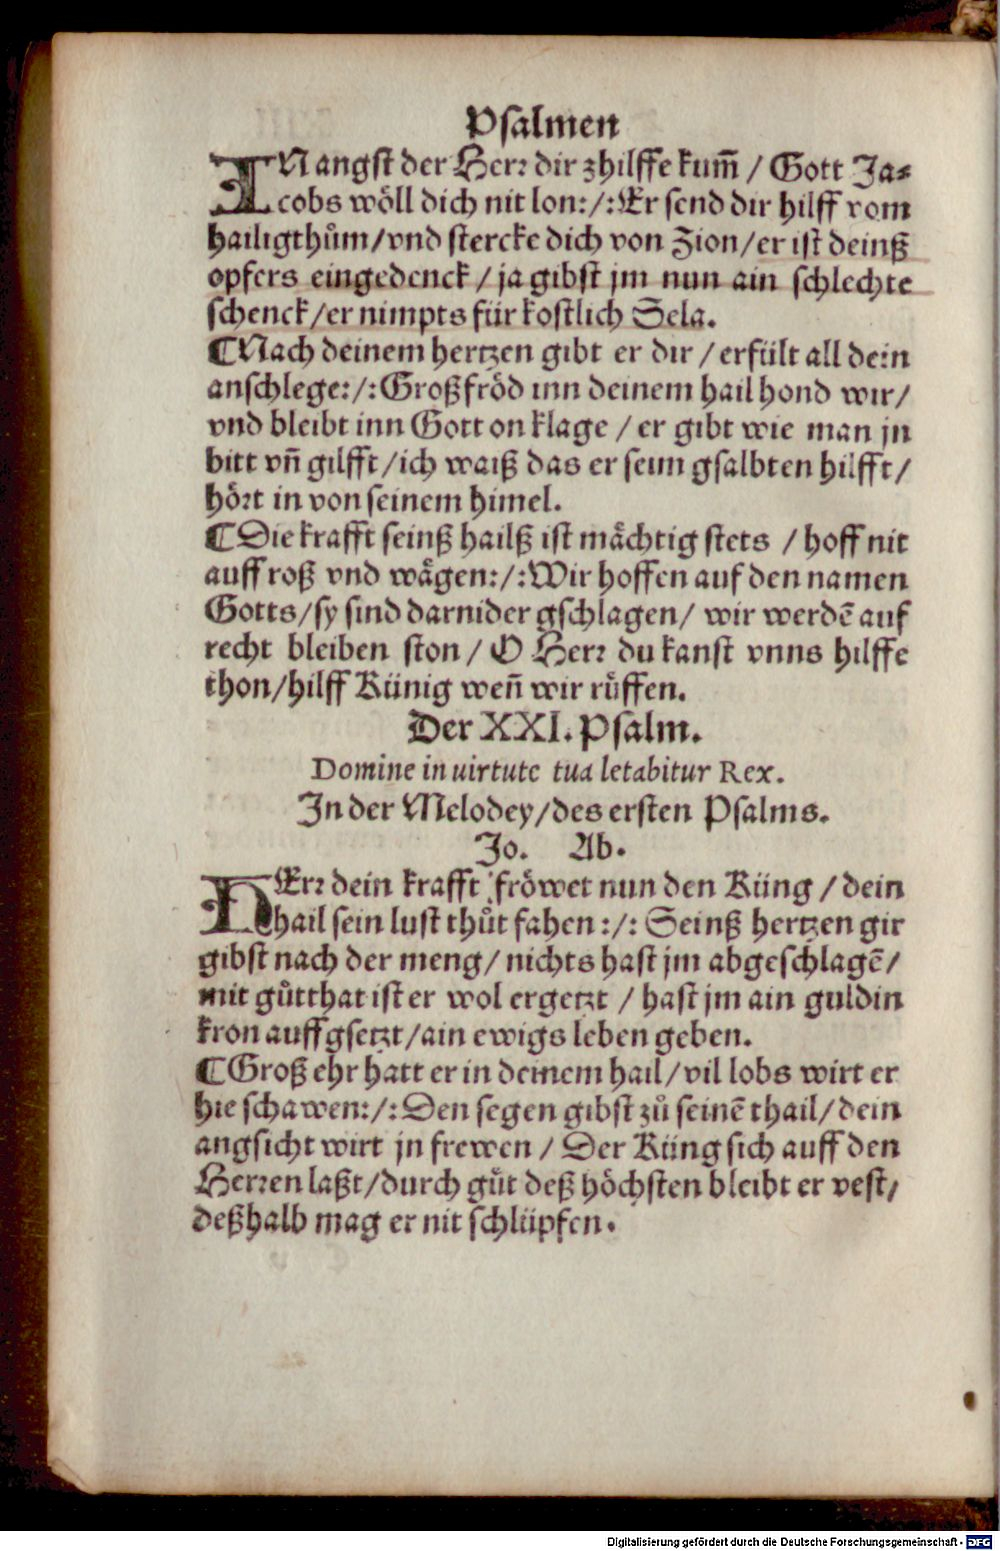 Psalmen
IN angst der Herr dir zhilffe kum̄ / Gott Ja⸗
cobs wöll dich nit lon:/:Er send dir hilff vom
hailigthům/vnd stercke dich von Zion/er ist deinß
opfers eingedenck / ja gibst jm nun ain schlechte
schenck/er nimpts für kostlich Sela.
¶Nach deinem hertzen gibt er dir / erfült all dein
anschlege:/:Großfröd inn deinem hail hond wir/
vnd bleibt inn Gott on klage / er gibt wie man jn
bitt vn̄ gilfft/ich waiß das er seim gsalbten hilfft/
hört in von seinem himel.
¶Die krafft seinß hailß ist mächtig stets / hoff nit
auff roß vnd wägen:/:Wir hoffen auf den namen
Gotts/sy sind darnider gschlagen/ wir werdē auf
recht bleiben ston / O Herr du kanst vnns hilffe
thon/hilff Künig wen̄ wir rüffen.
Der XXI. Psalm.
Domine in uirtute tua letabitur Rex.
In der Melodey/des ersten Psalms.
Jo. Ab.
HErr dein krafft fröwet nun den Küng / dein
hail sein lust thůt fahen :/: Seinß hertzen gir
gibst nach der meng/ nichts hast jm abgeschlagē/
mit gůtthat ist er wol ergetzt / hast jm ain guldin
kron auffgsetzt/ain ewigs leben geben.
¶Groß ehr hatt er in deinem hail/vil lobs wirt er
hie schawen:/:Den segen gibst zů seinē thail/dein
angsicht wirt jn frewen / Der Küng sich auff den
Herren laßt/durch gůt deß höchsten bleibt er vest/
deßhalb mag er nit schlüpfen.
Digitalisierung gefördert durch die Deutsche Forschungsgemeinschaft - DFG